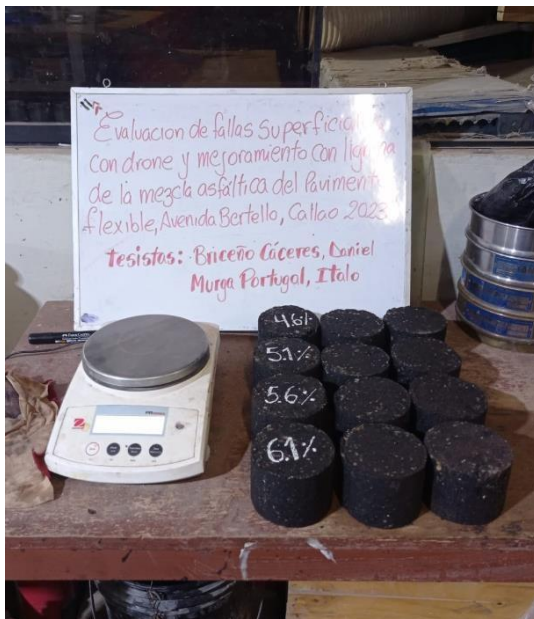 Evaluacion de fallas Superficial
con drone y mejoramiento con lignina
de la mezcla asfaltica del Pavimento
flexible, Avenida Bertello, Callao 2023
tesistas: Briceño Cáceres, Daniel
Murga Portugal, Italo
4.6%
5.1%
5.6%
6.1%